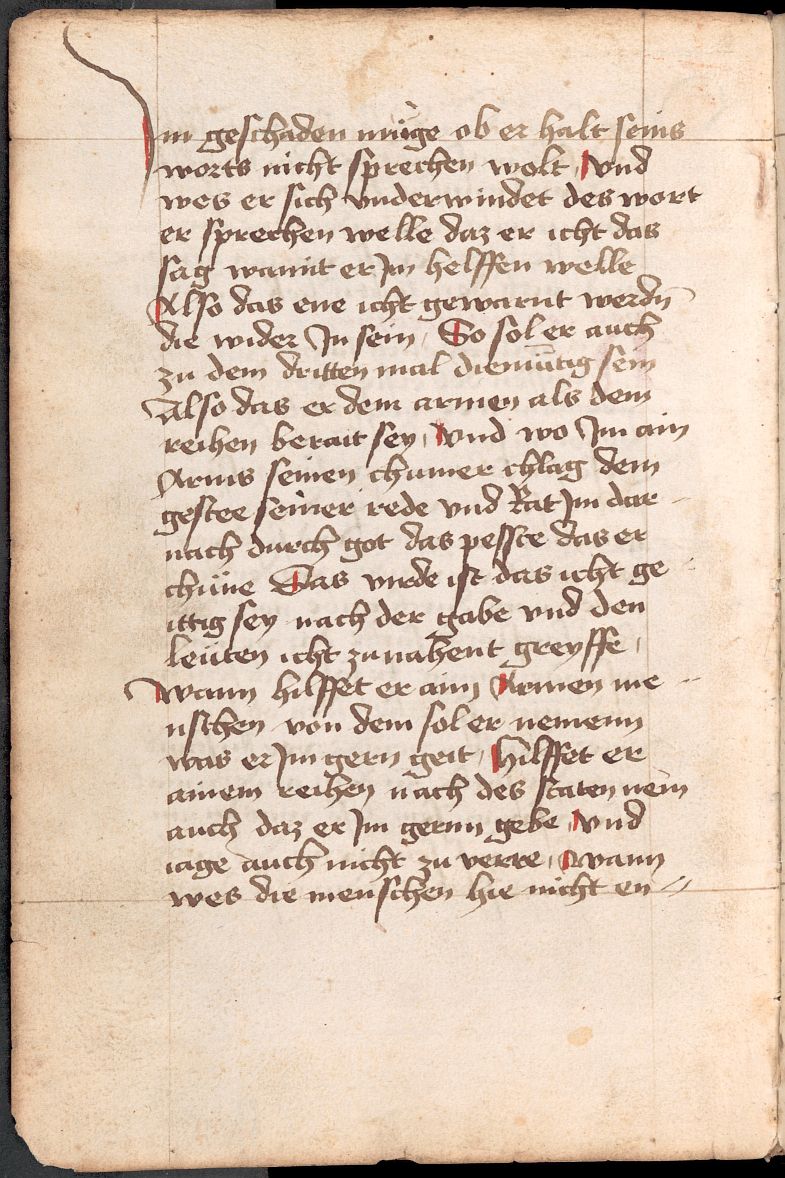 Im geschaden müge ob er halt seins
worts nicht sprechen wolt, Vnd
wes er sich vnderwindet des wort
er sprechen welle daz er icht das
sag wamit er Jm helffen welle
Also das ene icht gewarnt werdn̄
die wider Jn sein, So sol er auch
zu dem dritten mal diemūtig sein
Also das er dem armen als dem
reihen berait sey, Vnd wo Jm ain
Arms seinen chumer chlag dem
gestee seiner rede vnd Rat Jm dar
nach durch got das pesste das er
chüne Das virde ist das icht ge
ittig sey nach der gabe vnd den
leüten icht zu nahent greyffe,
Wann hilffet er ainn Armen me
nschen von dem sol er nemenn
was er Jm gern geit, Hilffet er
ainem reihen nach des staten nem
auch daz er Jm gernn gebe, Vnd
iage auch nicht zu verre, Wann
wes die menschen hie nicht en